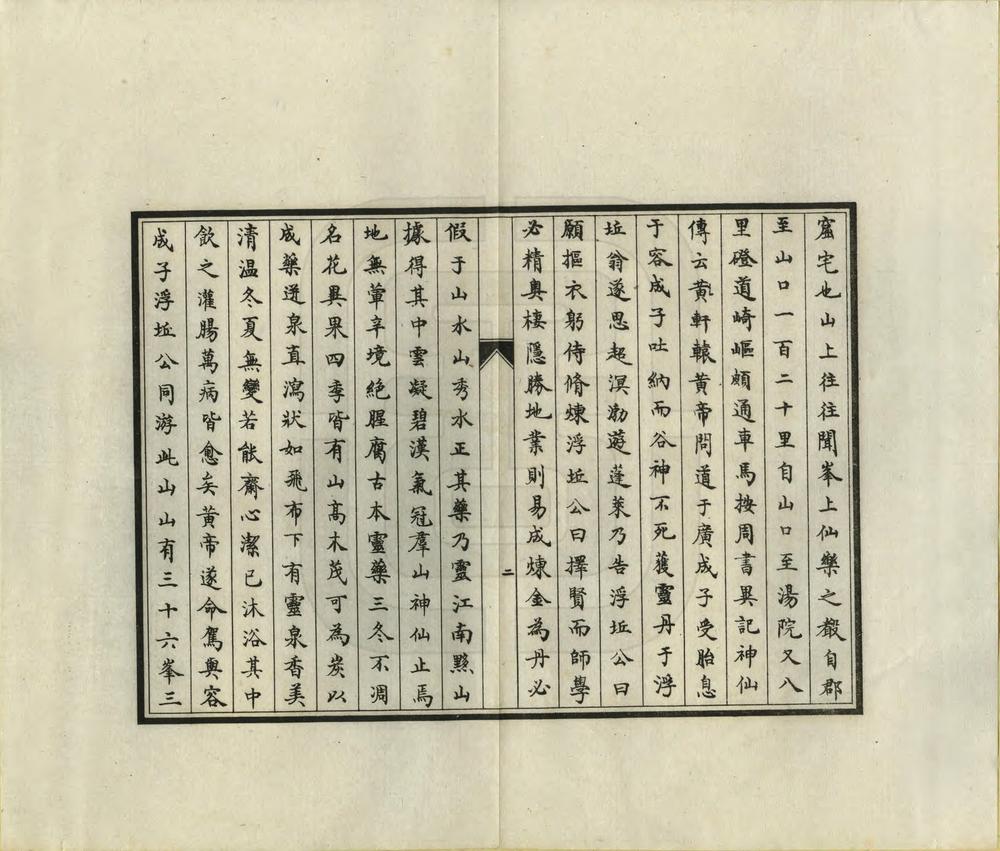 窟宅也山上往往聞峯上仙樂之聲自郡
至山口一百二十里自山口至湯院又八
里磴道崎嶇頗通車馬按周書異記神仙
傳云黃軒轅黃帝問道于廣成子受胎息
于容成子吐納而谷神不死獲靈丹于浮
坵翁遂思超溟渤遊蓬萊乃告浮坵公曰
願摳衣躬侍脩煉浮坵公曰擇賢而師學
必精奧棲隱勝地業則易成煉金為丹必
二
假于山水山秀水正其藥乃靈江南黟山
據得其中雲凝碧漢氣冠羣山神仙止焉
地無葷辛境絕腥腐古本靈藥三冬不凋
名花異果四季皆有山高木茂可為炭以
成藥迸泉直瀉狀如飛布下有靈泉香美
清温冬夏無變若能齋心潔已沐浴其中
飲之灌腸萬病皆愈矣黃帝遂命駕與容
成子浮坵公同游此山山有三十六峯三